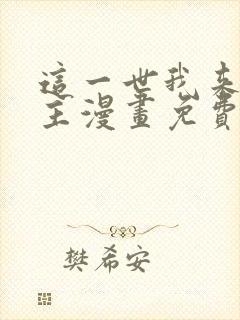 這一世我来
主漫畫免費
樊希安